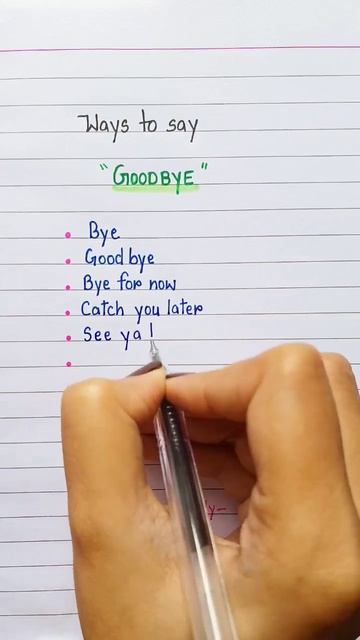 Ways to say
"GOODBYE"
• Bye
• Good bye
• Bye for now
• Catch you later
• See ya l
•
y-